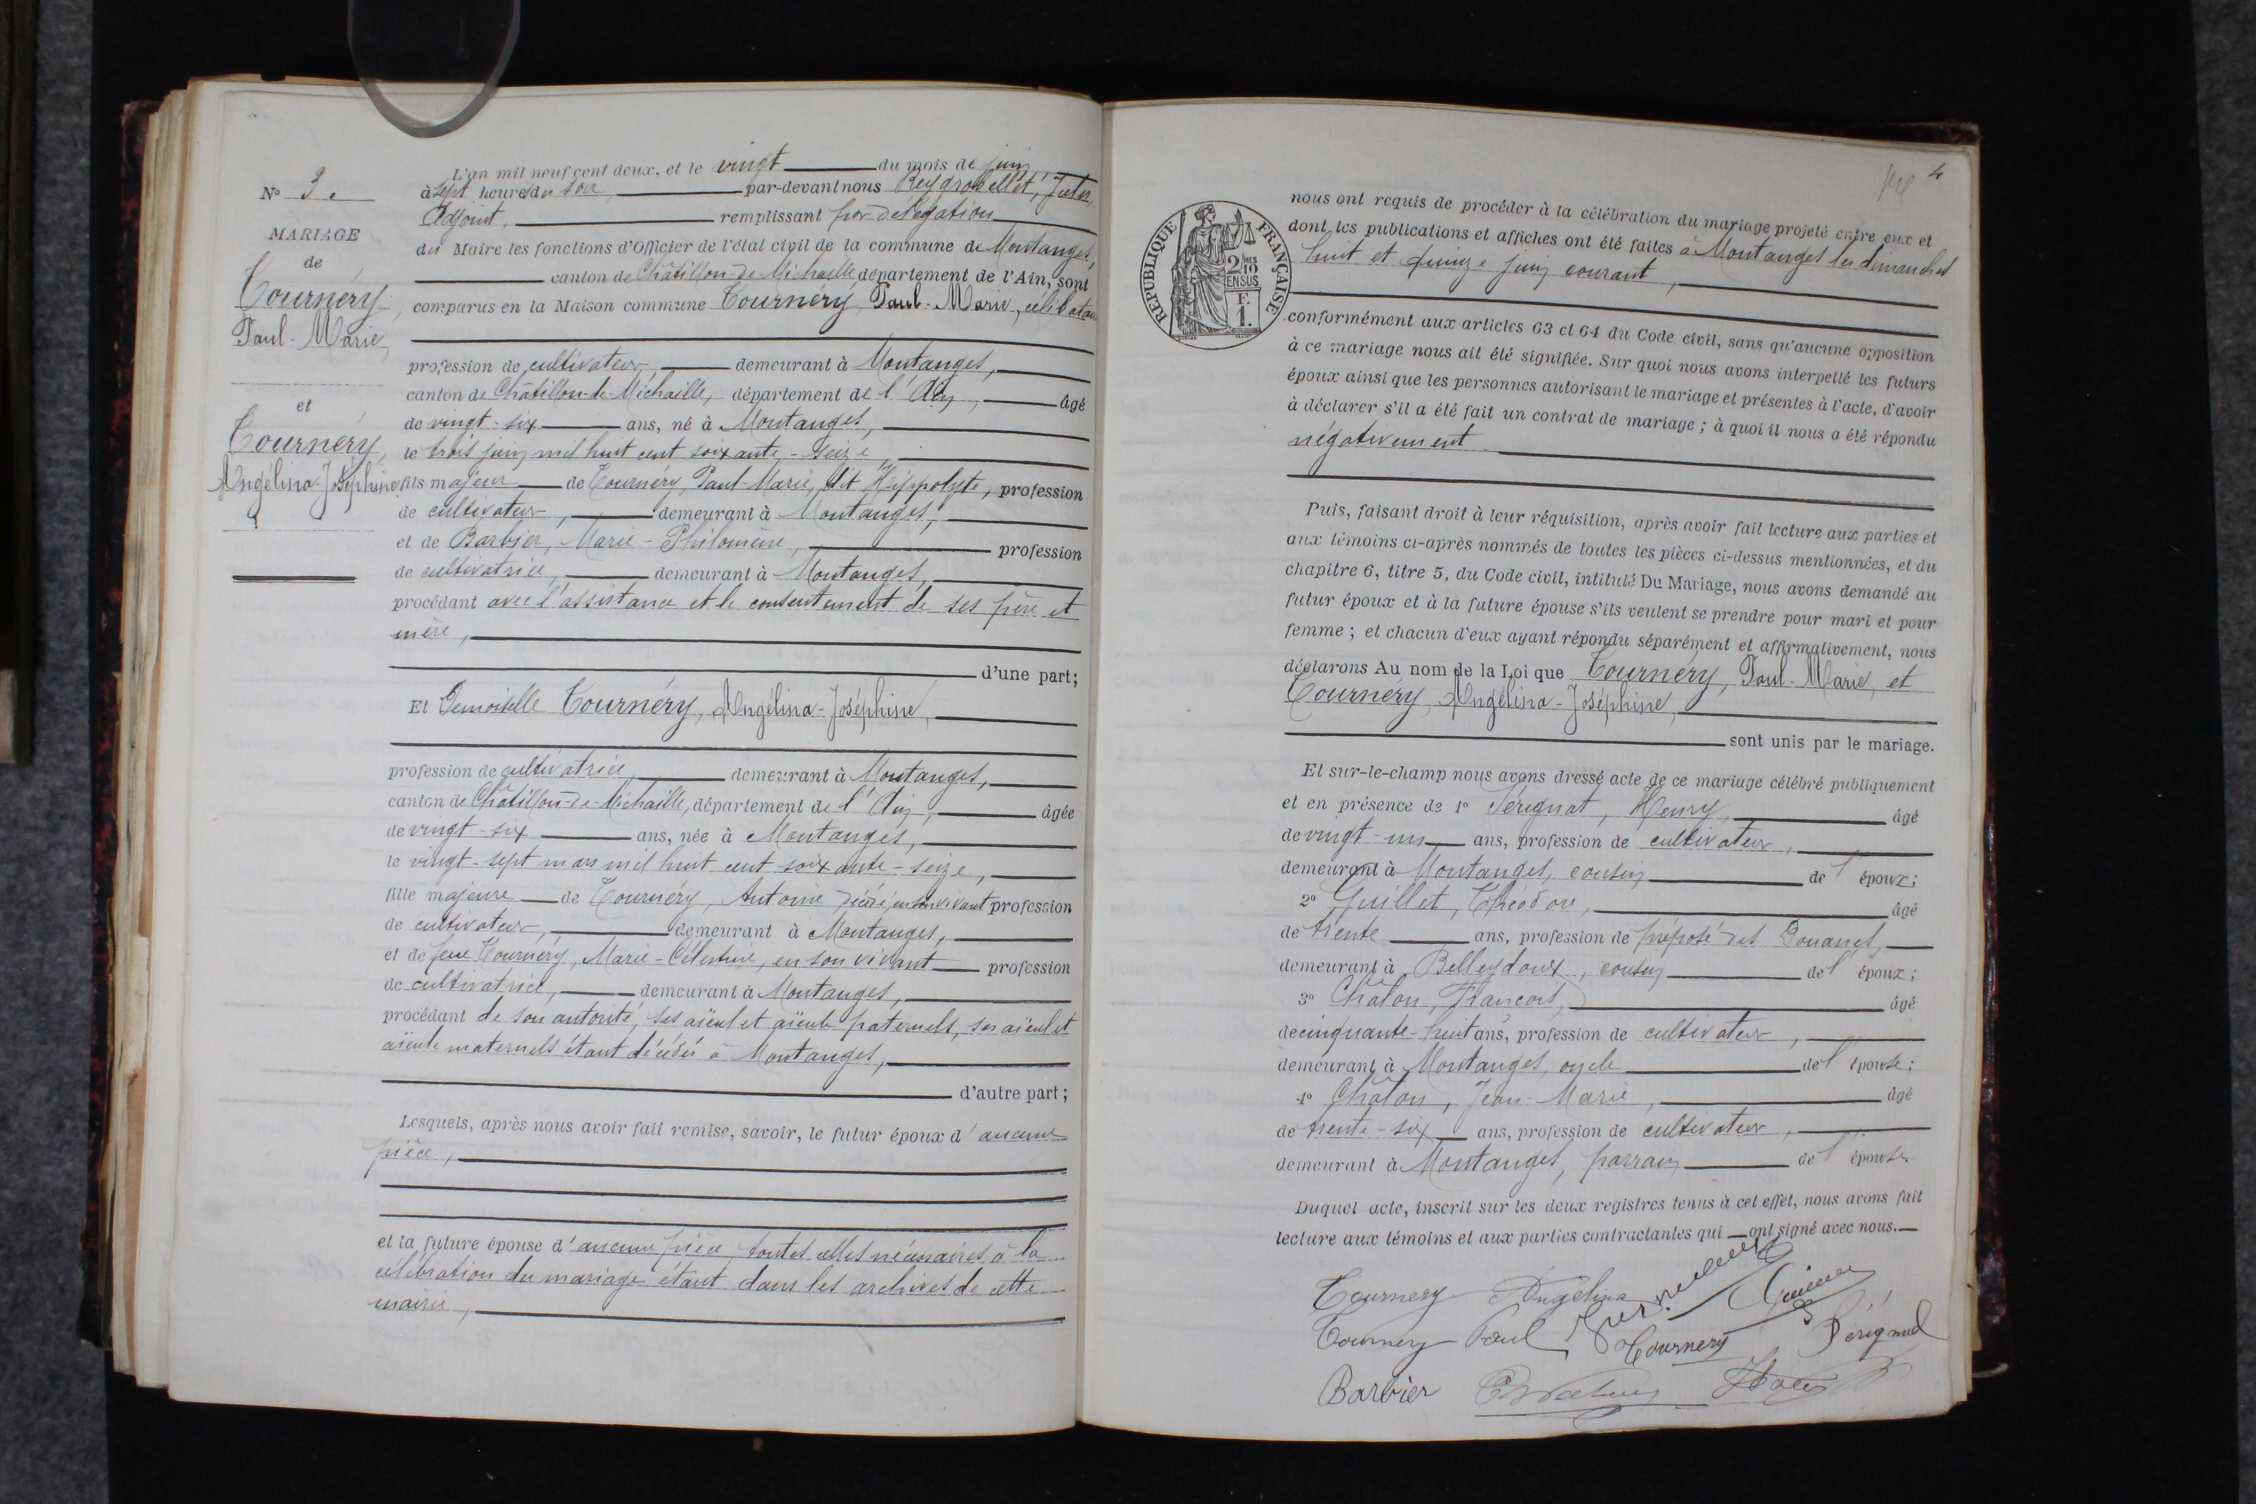 N° 3.
MARIAGE
de
Tournéry
Paul-Marie,
et
Tournéry,
Angélina-Joséphine.
L'an mil neuf cent deux, et le vingt du mois de juin
à sept heures du soir, par-devant nous Reygrobellet, Jules,
Adjoint, remplissant par délégation
du Maire les fonctions d'Officier de l'état civil de la commune de Montanges,
canton de Châtillon-de-Michaille département de l'Ain, sont
comparus en la Maison commune Tournéry, Paul-Marie, célibataire
profession de cultivateur, demeurant à Montanges,
canton de Châtillon-de-Michaille, département de l'Ain, âgé
de vingt-six ans, né à Montanges,
le trois juin mil huit cent soixante-seize,
fils majeur de Tournéry, Paul-Marie, dit Hippolyte, profession
de cultivateur, demeurant à Montanges,
et de Barbier, Marie-Philomène, profession
de cultivatrice, demeurant à Montanges,
procédant avec l'assistance et le consentement de ses père et
mère,
d'une part;
Et Demoiselle Tournéry, Angélina-Joséphine,
profession de cultivatrice, demeurant à Montanges,
canton de Châtillon-de-Michaille, département de l'Ain, âgée
de vingt-six ans, née à Montanges,
le vingt-sept mars mil huit cent soixante-seize,
fille majeure de Tournéry, Antoine décédé, en son vivant profession
de cultivateur, demeurant à Montanges,
et de feue Tournéry, Marie-Célestine, en son vivant profession
de cultivatrice, demeurant à Montanges,
procédant de son autorité, ses aïeul et aïeule paternels, ses aïeul et
aïeule maternels étant décédés à Montanges,
d'autre part;
Lesquels, après nous avoir fait remise, savoir, le futur époux d'aucune
pièce,
et la future épouse d'aucune pièce toutes celles nécessaires à la
célébration du mariage étant dans les archives de cette
mairie,
4
RÉPUBLIQUE FRANÇAISE
2/10 EN SUS
F. 1.
nous ont requis de procéder à la célébration du mariage projeté entre eux et
dont les publications et affiches ont été faites à Montanges les dimanches
huit et quinze juin courant,
conformément aux articles 63 et 64 du Code civil, sans qu'aucune opposition
à ce mariage nous ait été signifiée. Sur quoi nous avons interpellé les futurs
époux ainsi que les personnes autorisant le mariage et présentes à l'acte, d'avoir
à déclarer s'il a été fait un contrat de mariage; à quoi il nous a été répondu
négativement
Puis, faisant droit à leur réquisition, après avoir fait lecture aux parties et
aux témoins ci-après nommés de toutes les pièces ci-dessus mentionnées, et du
chapitre 6, titre 5, du Code civil, intitulé Du Mariage, nous avons demandé au
futur époux et à la future épouse s'ils veulent se prendre pour mari et pour
femme; et chacun d'eux ayant répondu séparément et affirmativement, nous
déclarons Au nom de la Loi que Tournéry, Paul-Marie, et
Tournéry, Angélina-Joséphine,
sont unis par le mariage.
Et sur-le-champ nous avons dressé acte de ce mariage célébré publiquement
et en présence de 1° Pérignat, Henry, âgé
de vingt-un ans, profession de cultivateur,
demeurant à Montanges, cousin de l'époux;
2° Guillet, Théodore, âgé
de trente ans, profession de préposé des Douanes,
demeurant à Belleydoux, cousin de l'époux;
3° Châlon, François, âgé
de cinquante-huit ans, profession de cultivateur,
demeurant à Montanges, oncle de l'épouse;
4° Châlon, Jean-Marie, âgé
de trente-six ans, profession de cultivateur,
demeurant à Montanges, parrain de l'épouse
Duquel acte, inscrit sur les deux registres tenus à cet effet, nous avons fait
lecture aux témoins et aux parties contractantes qui ont signé avec nous.
Tournery Angelina
Tournery Paul Tournery
Barbier